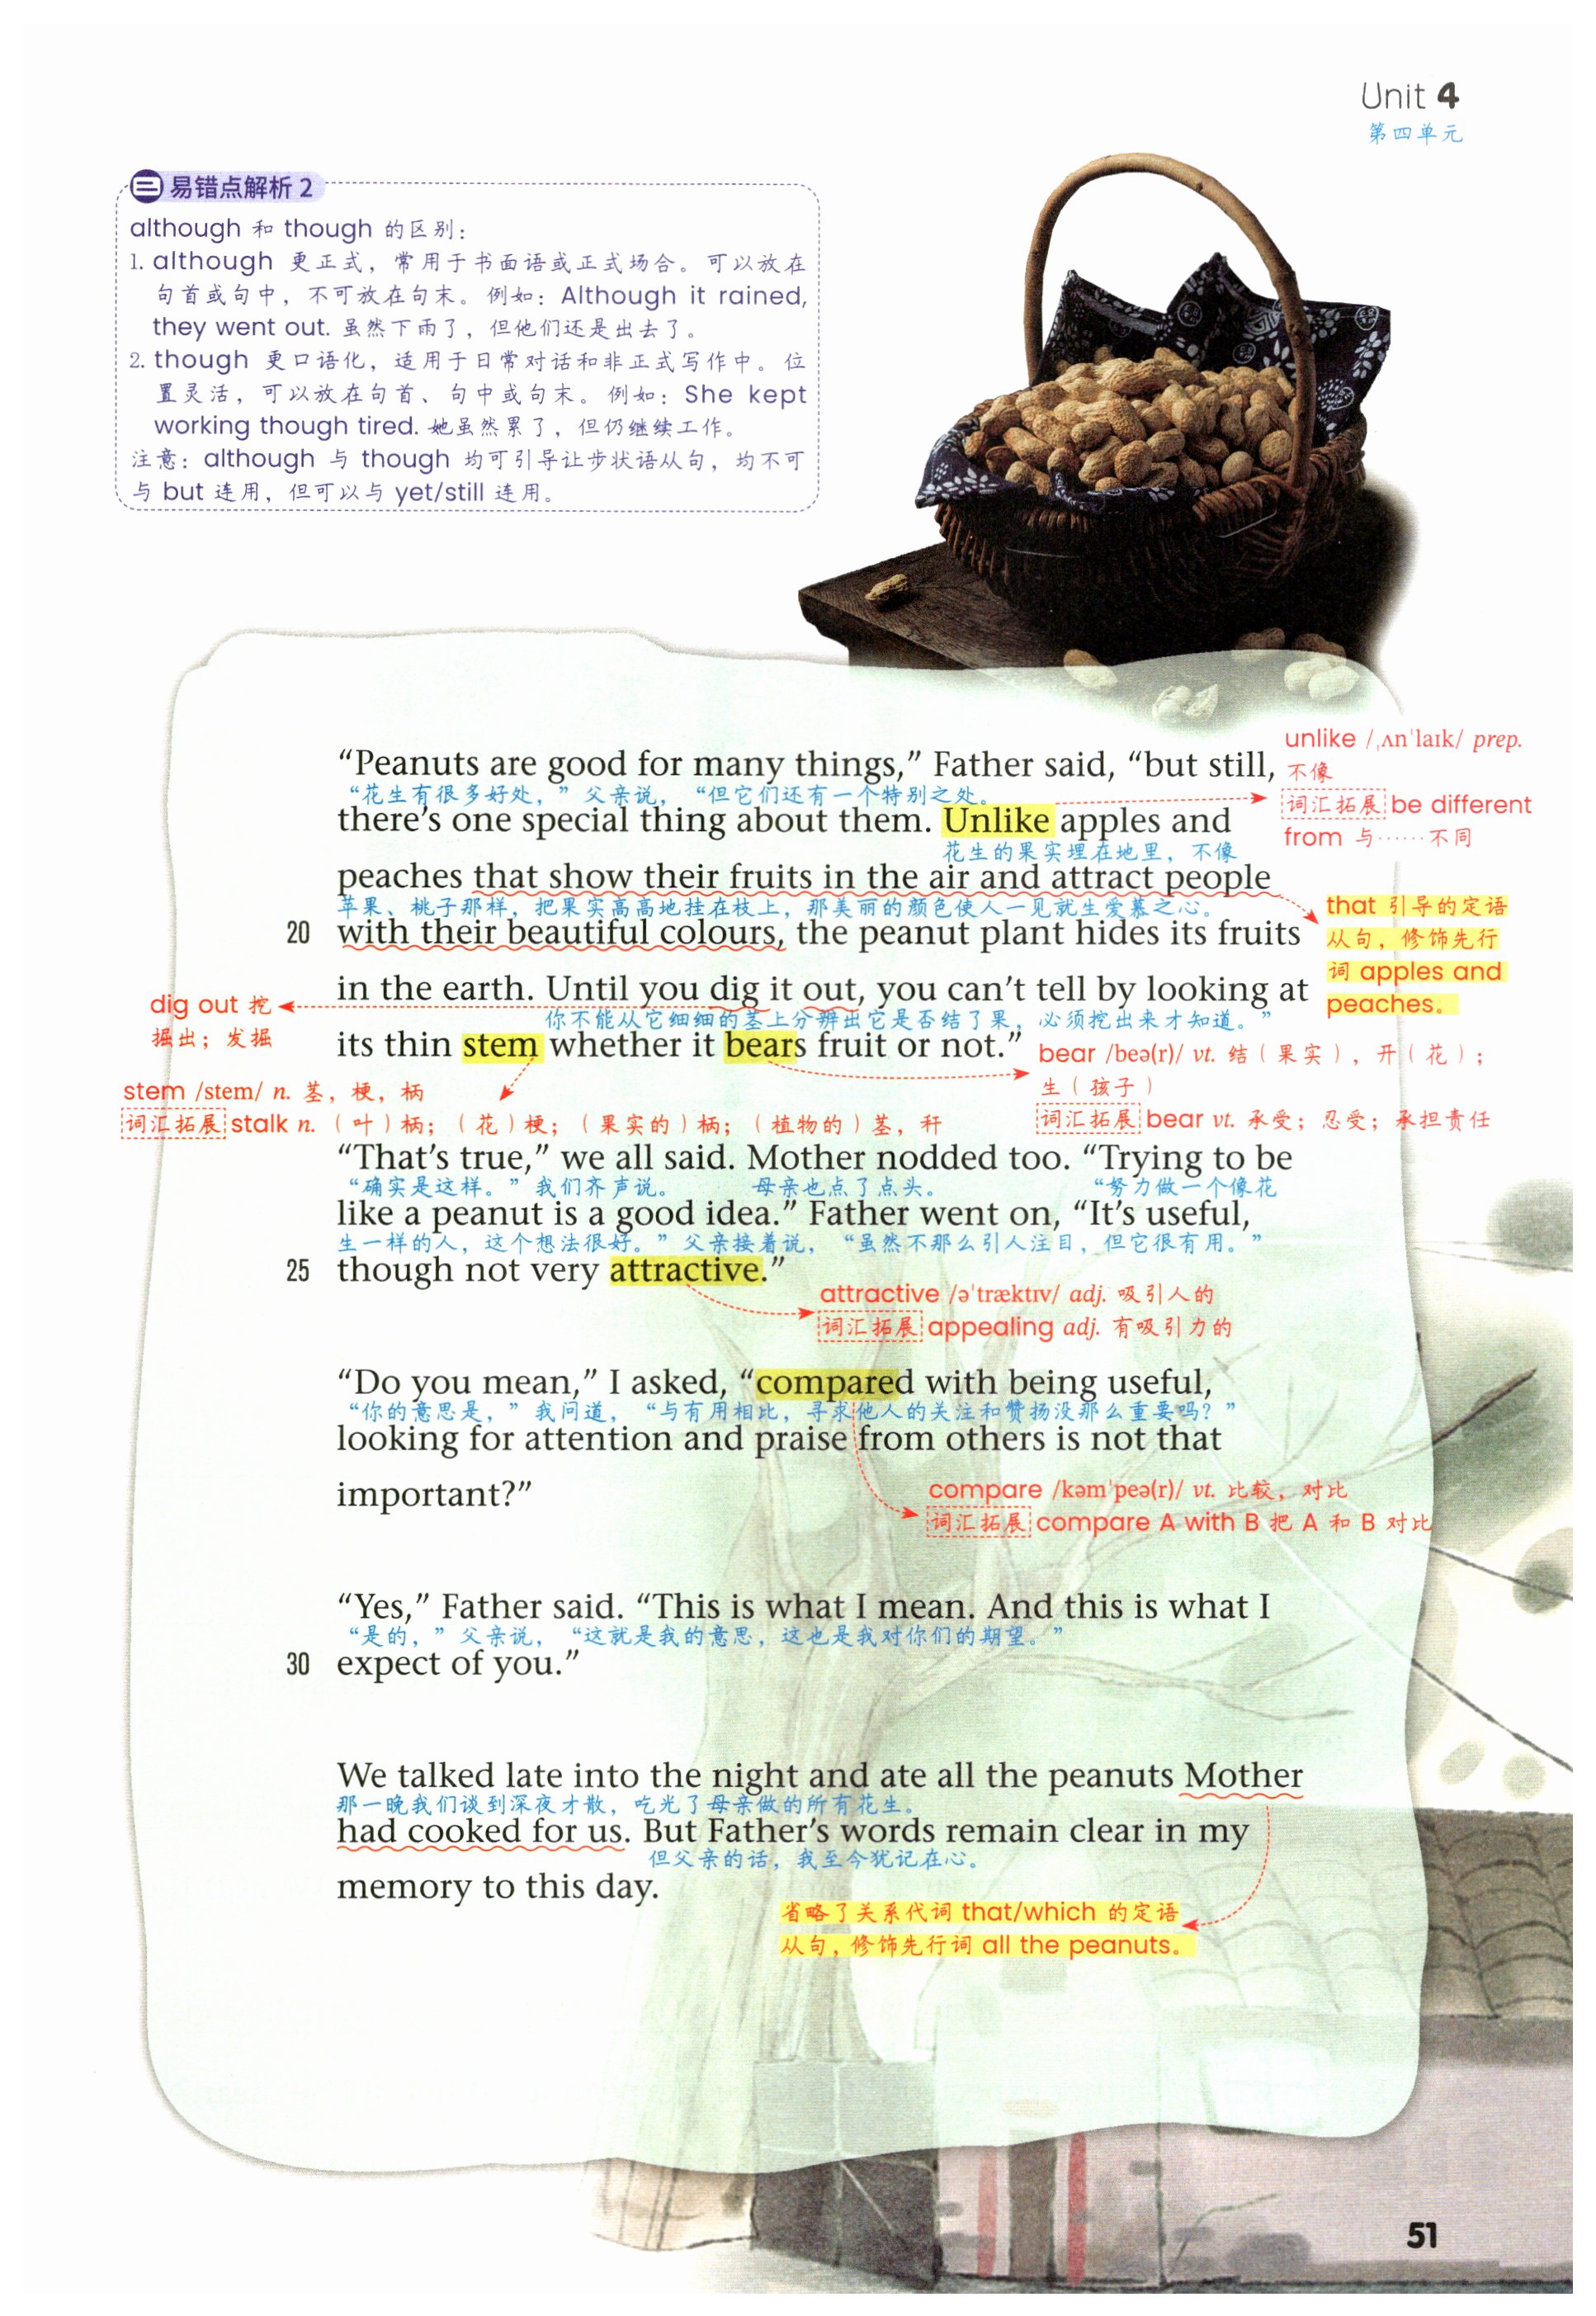 Unit 4
第四单元
易错点解析 2
although 和 though 的区别：
1. although 更正式，常用于书面语或正式场合。可以放在
句首或句中，不可放在句末。例如：Although it rained,
they went out. 虽然下雨了，但他们还是出去了。
2. though 更口语化，适用于日常对话和非正式写作中。位
置灵活，可以放在句首、句中或句末。例如：She kept
working though tired. 她虽然累了，但仍继续工作。
注意：although 与 though 均可引导让步状语从句，均不可
与 but 连用，但可以与 yet/still 连用。
“Peanuts are good for many things,” Father said, “but still,
“花生有很多好处，”父亲说，“但它们还有一个特别之处。
there’s one special thing about them. Unlike apples and
花生的果实埋在地里，不像
peaches that show their fruits in the air and attract people
苹果、桃子那样，把果实高高地挂在枝上，那美丽的颜色使人一见就生爱慕之心。
20 with their beautiful colours, the peanut plant hides its fruits
in the earth. Until you dig it out, you can’t tell by looking at
你不能从它细细的茎上分辨出它是否结了果，必须挖出来才知道。”
its thin stem whether it bears fruit or not.”
unlike /ˌʌnˈlaɪk/ prep.
不像
词汇拓展 be different
from 与……不同
that 引导的定语
从句，修饰先行
词 apples and
peaches。
dig out 挖
掘出；发掘
stem /stem/ n. 茎，梗，柄
词汇拓展 stalk n.（叶）柄；（花）梗；（果实的）柄；（植物的）茎，秆
bear /beə(r)/ vt. 结（果实），开（花）；
生（孩子）
词汇拓展 bear vt. 承受；忍受；承担责任
“That’s true,” we all said. Mother nodded too. “Trying to be
“确实是这样。”我们齐声说。 母亲也点了点头。 “努力做一个像花
like a peanut is a good idea.” Father went on, “It’s useful,
生一样的人，这个想法很好。”父亲接着说，“虽然不那么引人注目，但它很有用。”
25 though not very attractive.”
attractive /əˈtræktɪv/ adj. 吸引人的
词汇拓展 appealing adj. 有吸引力的
“Do you mean,” I asked, “compared with being useful,
“你的意思是，”我问道，“与有用相比，寻求他人的关注和赞扬没那么重要吗？”
looking for attention and praise from others is not that
important?”
compare /kəmˈpeə(r)/ vt. 比较，对比
词汇拓展 compare A with B 把 A 和 B 对比
“Yes,” Father said. “This is what I mean. And this is what I
“是的，”父亲说，“这就是我的意思，这也是我对你们的期望。”
30 expect of you.”
We talked late into the night and ate all the peanuts Mother
那一晚我们谈到深夜才散，吃光了母亲做的所有花生。
had cooked for us. But Father’s words remain clear in my
但父亲的话，我至今犹记在心。
memory to this day.
省略了关系代词 that/which 的定语
从句，修饰先行词 all the peanuts。
51